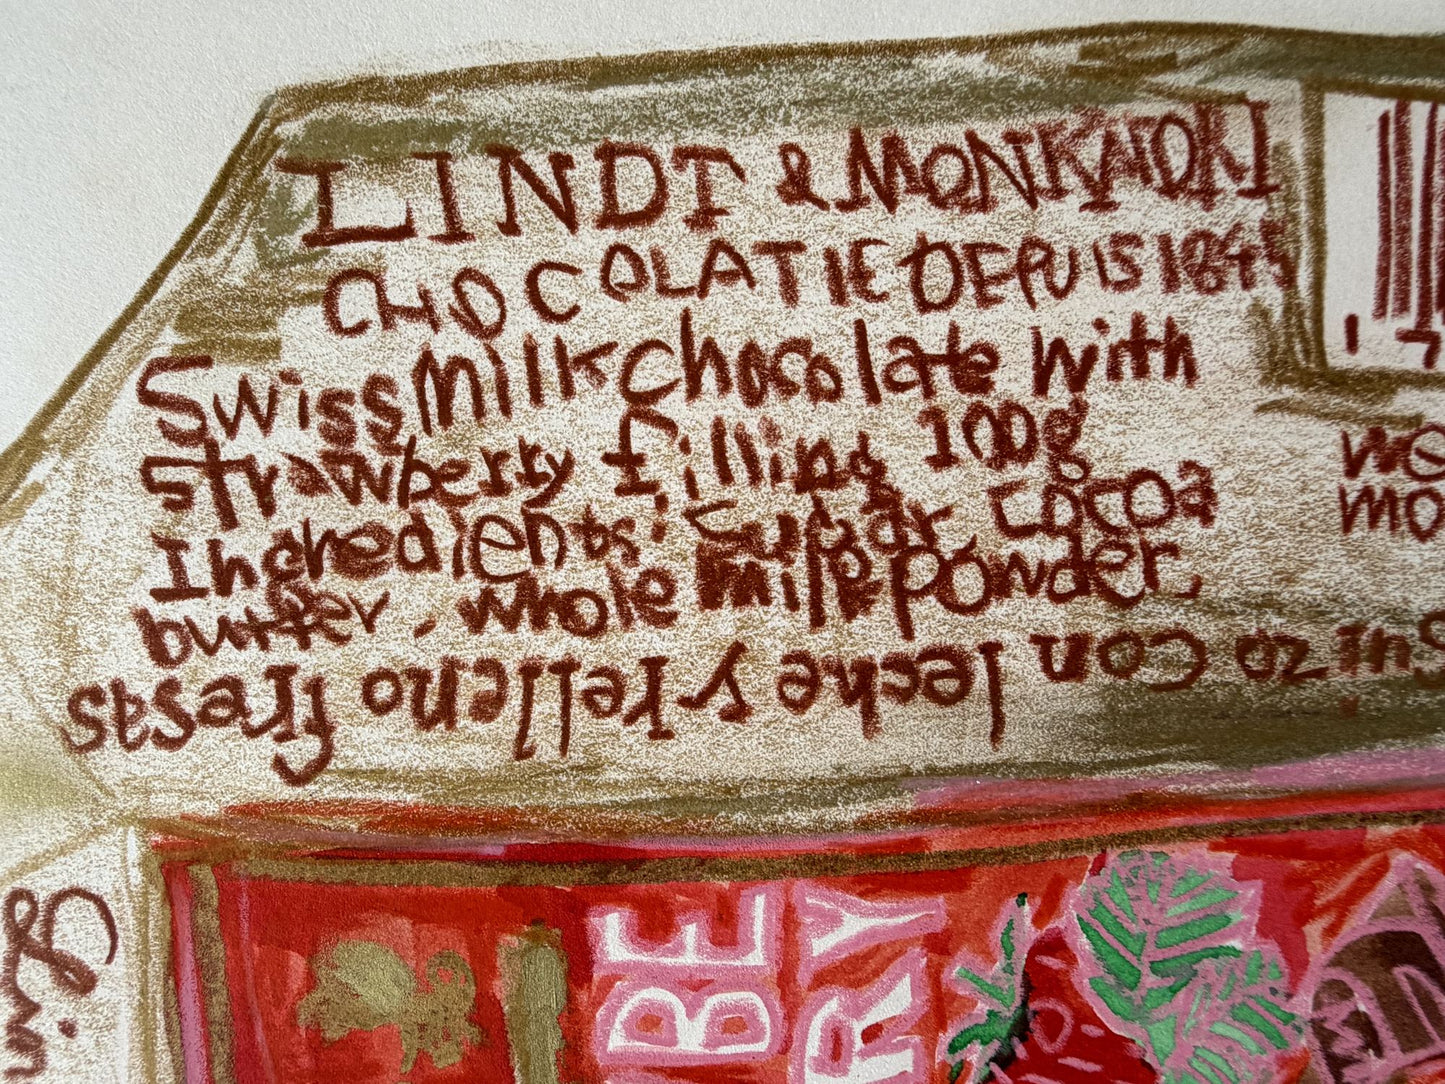 LINDT & MONKAIOKI
CHOCOLATIE DEPUIS 1845
Swiss Milk Chocolate with
strawberry filling 100g
Ingredients: Sugar cocoa
butter, whole milk powder,
Suizo con leche y relleno fresas
BE
RY
Lin